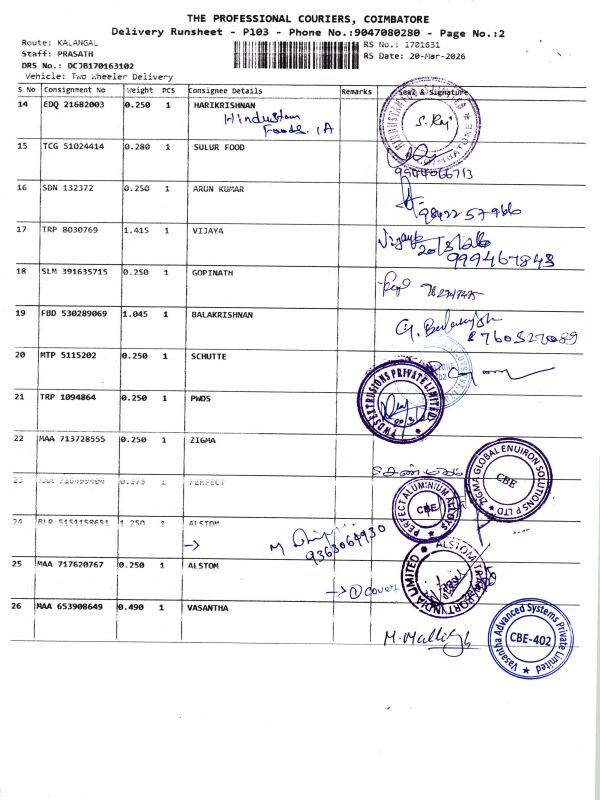 THE PROFESSIONAL COURIERS, COIMBATORE
Delivery Runsheet - P103 - Phone No.:9047080280 - Page No.:2
Route: KALANGAL
RS No.: 1701631
Staff: PRASATH
RS Date: 20-Mar-2026
DRS No.: DCJB170163102
Vehicle: Two Wheeler Delivery
S No Consignment No Weight PCS Consignee Details Remarks Seal & Signature
14 EDQ 21682003 0.250 1 HARIKRISHNAN
Hindustan
Foods. IA
S. Raj
15 TCG 51024414 0.280 1 SULUR FOOD
9944066713
16 SDN 132372 0.250 1 ARUN KUMAR
9842257966
17 TRP 8030769 1.415 1 VIJAYA
Vijaya
20/3/26
999467843
18 SLM 391635715 0.250 1 GOPINATH
19 FBD 530289069 1.045 1 BALAKRISHNAN
8760527089
20 MTP 5115202 0.250 1 SCHUTTE
21 TRP 1094864 0.250 1 PWDS
PWDS EXTRUSIONS PRIVATE LIMITED
22 MAA 713728555 0.250 1 ZIGMA
ZIGMA GLOBAL ENVIRON SOLUTIONS P LTD
CBE
23 MAA 716499404 0.575 1 PERFECT
PERFECT ALUMINIUM ALLOYS
CBE
24 BLR 5151158651 1.250 1 ALSTOM
9363064930
25 MAA 717620767 0.250 1 ALSTOM
ALSTOM TRANSPORT INDIA LIMITED
① Cover
26 MAA 653908649 0.490 1 VASANTHA
Vasantha Advanced Systems Private Limited
CBE-402